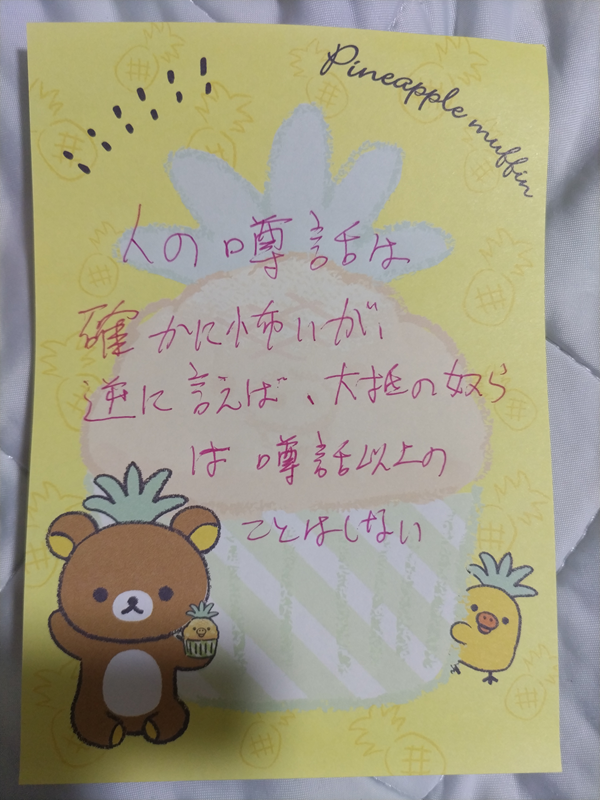 Pineapple muffin
人の噂話は
確かに怖いが、
逆に言えば、大抵の奴ら
は噂話以上の
ことはしない